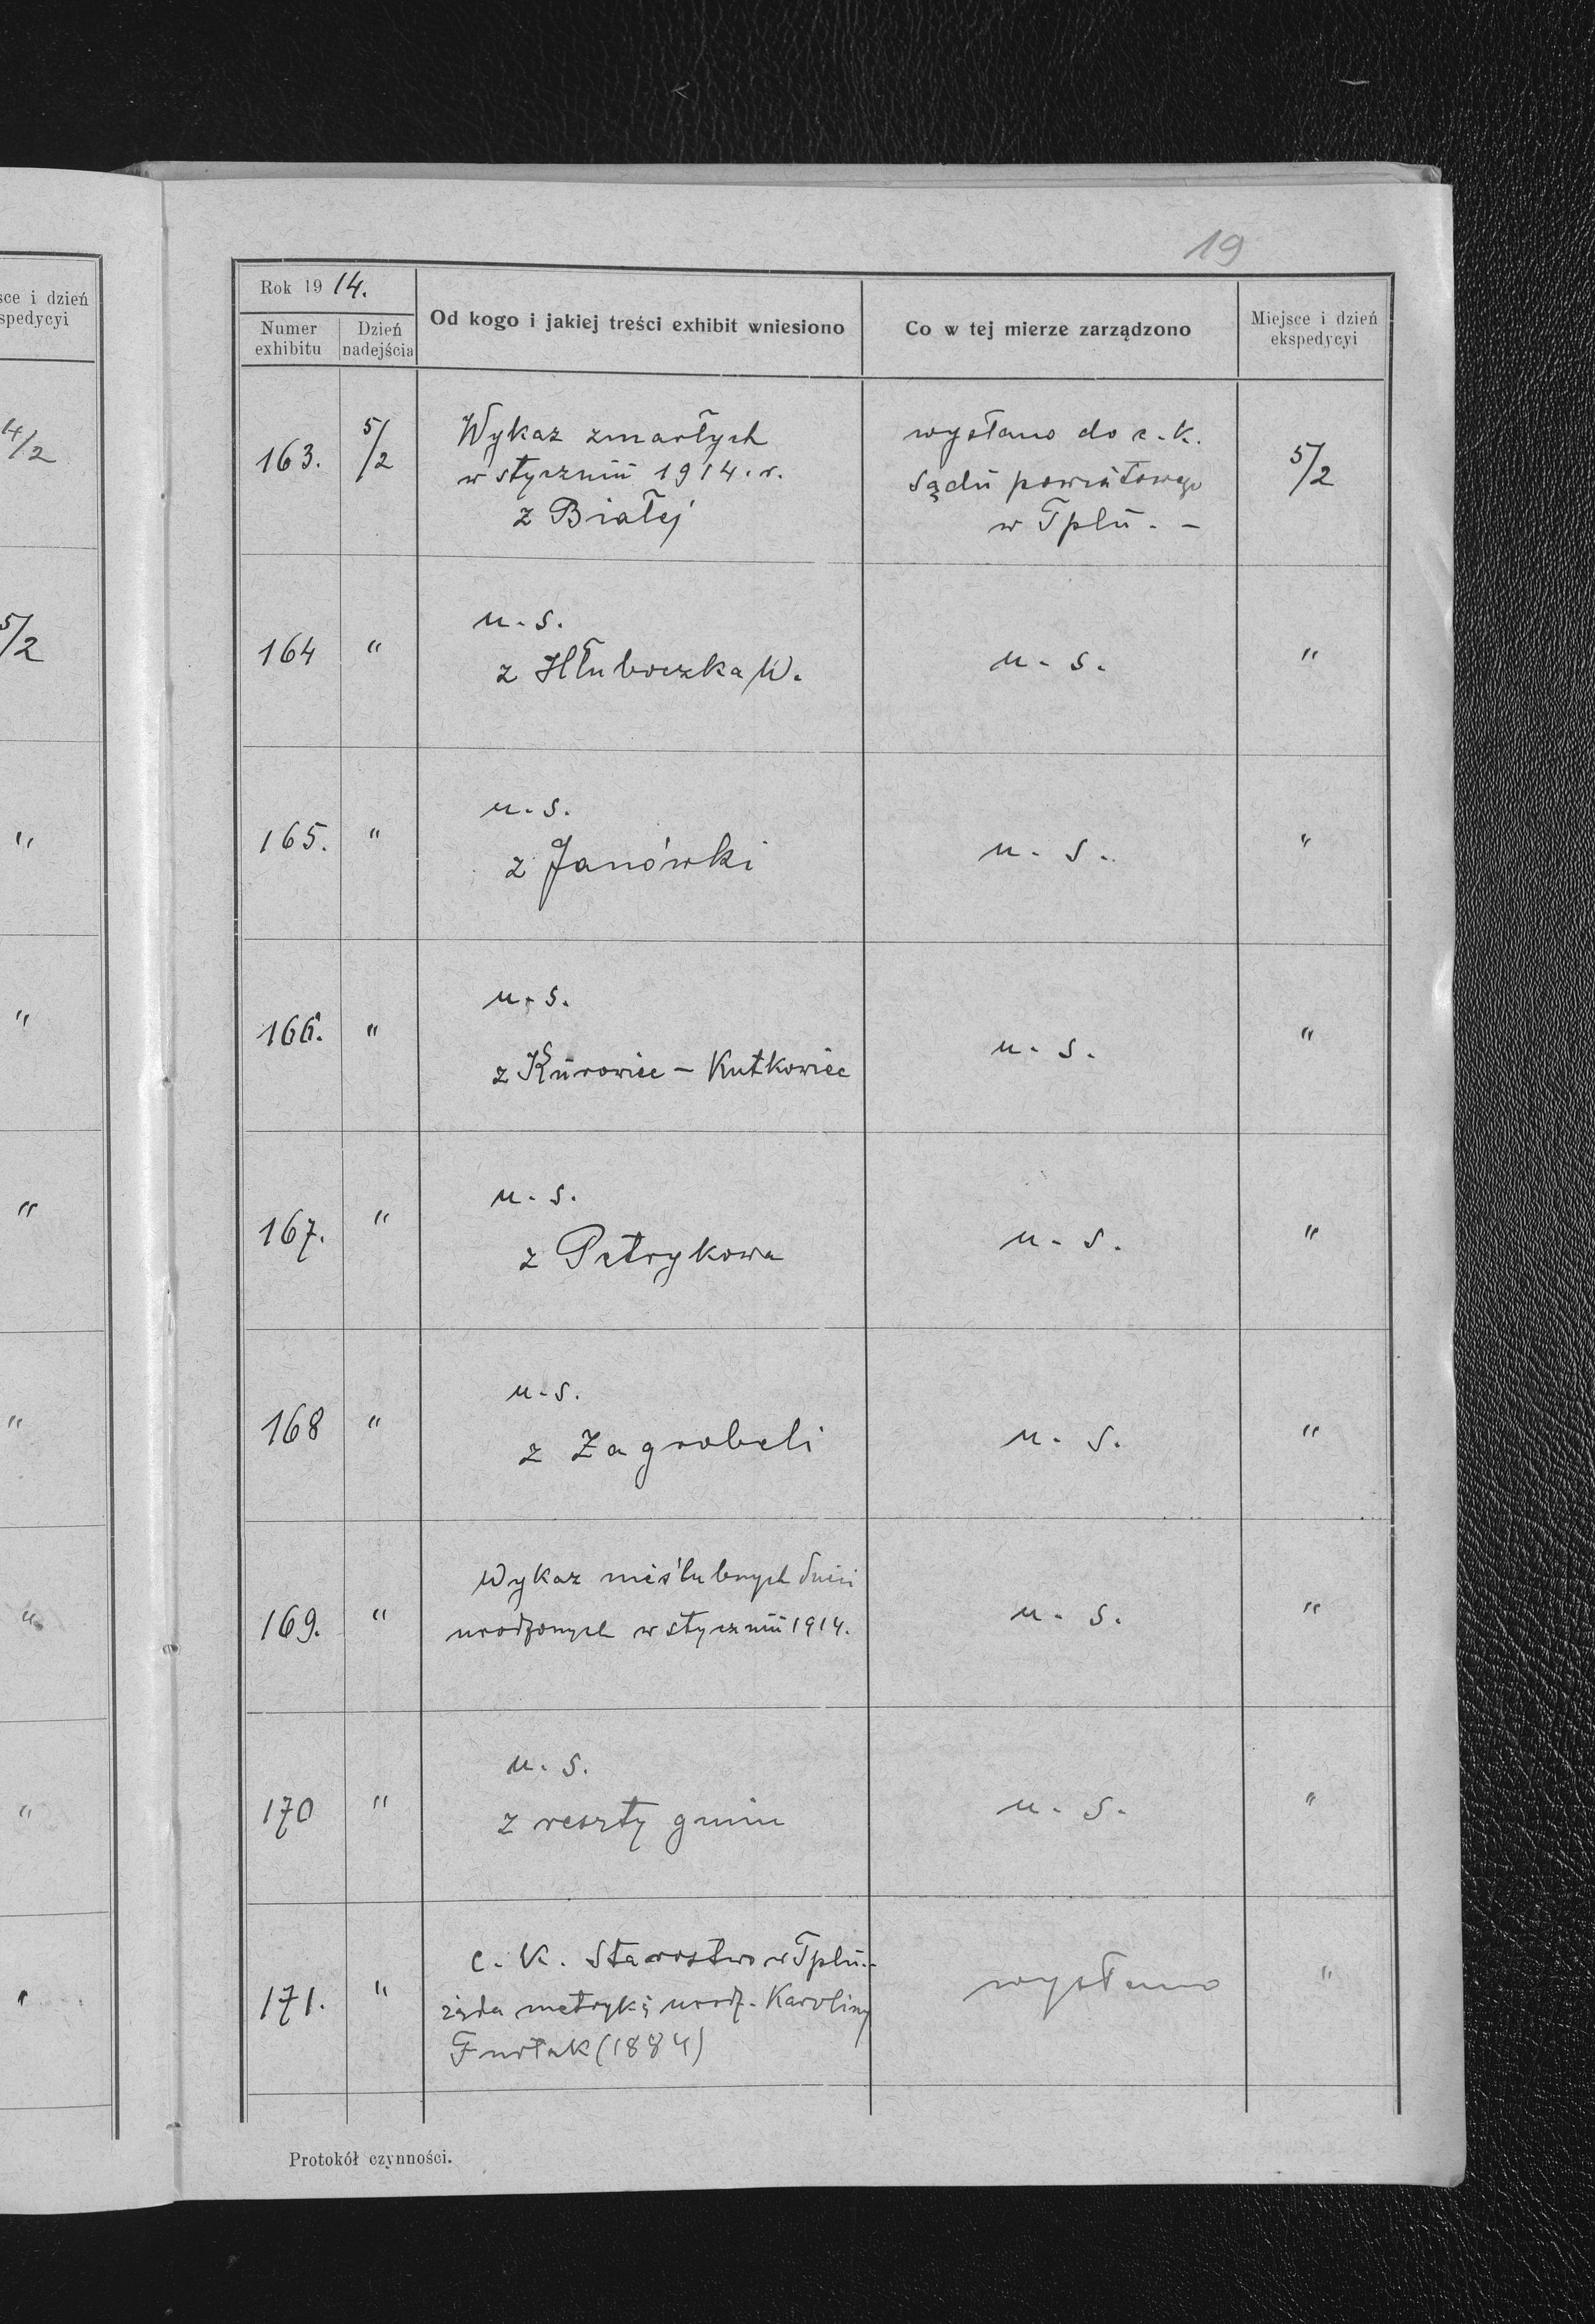 sce i dzień
spedycyi
4/2
5/2
"
"
"
"
"
"
"
19
Rok 1914.
Numer exhibitu
Dzień nadejścia
Od kogo i jakiej treści exhibit wniesiono
Co w tej mierze zarządzono
Miejsce i dzień ekspedycyi
163.
5/2
Wykaz zmarłych
w styczniu 1914. r.
z Białej
wysłano do c. k.
sądu powiatowego
w Tplu. -
5/2
164
"
u. s.
z Hłuboczka W.
u. s.
"
165.
"
u. s.
z Janówki
u. s.
"
166.
"
u. s.
z Kurowiec - Kutkowiec
u. s.
"
167.
"
u. s.
z Petrykowa
u. s.
"
168
"
u. s.
z Zagrobeli
u. s.
"
169.
"
Wykaz nieślubnych dzieci
urodzonych w styczniu 1914.
u. s.
"
170
"
u. s.
z reszty gmin
u. s.
"
171.
"
c. k. Starostwo w Tplu.-
żąda metryki urodz. Karoliny
Furtak (1884)
wysłano
"
Protokół czynności.